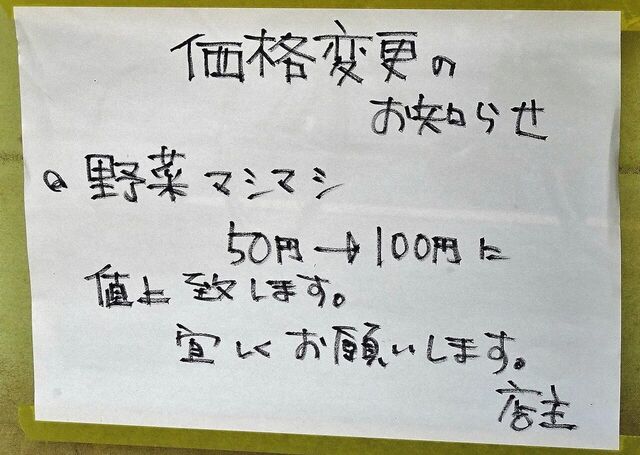 価格変更の
お知らせ
○野菜マシマシ
50円→100円に
値上致します。
宜しくお願いします。
店主